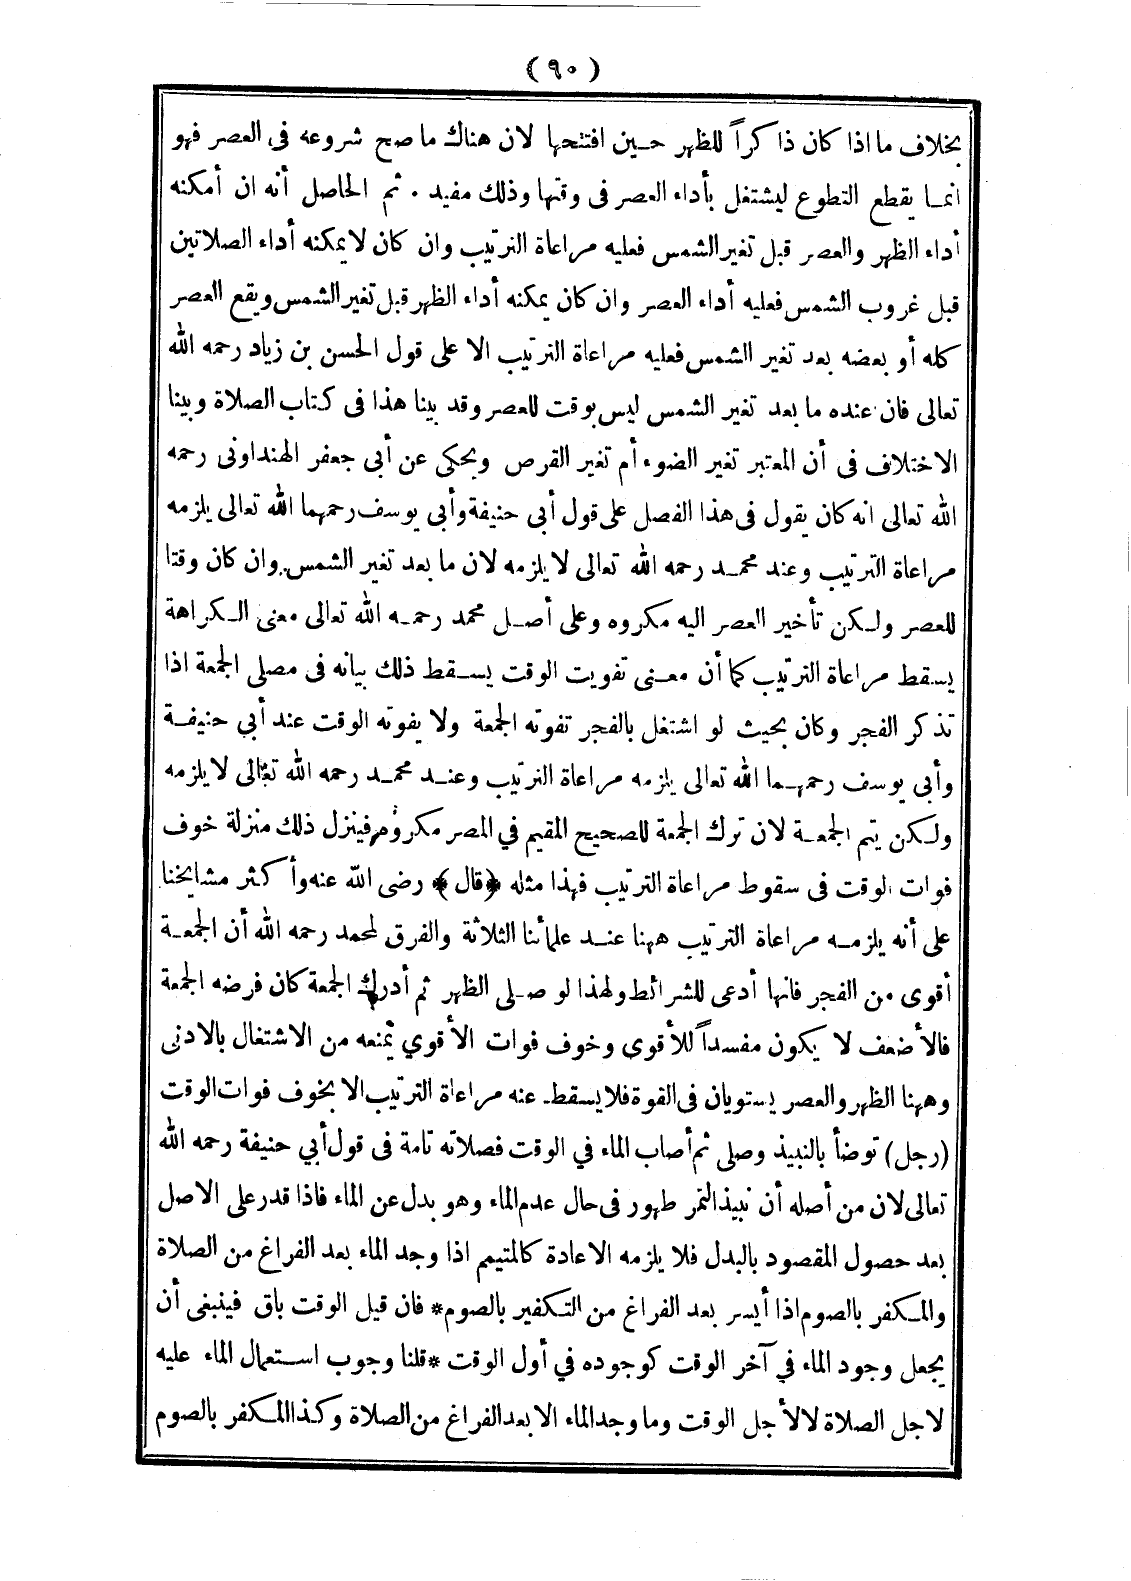 (٩٠)
بخلاف ما اذا كان ذاكراً للظهر حين افتتحها لان هناك ما صح شروعه فى العصر فهو
انما يقطع التطوع ليشتغل بأداء العصر فى وقتها وذلك مفيد . ثم الحاصل أنه ان أمكنه
أداء الظهر والعصر قبل تغير الشمس فعليه مراعاة الترتيب وان كان لا يمكنه أداء الصلاتين
قبل غروب الشمس فعليه أداء العصر وان كان يمكنه أداء الظهر قبل تغير الشمس ويقع العصر
كله أو بعضه بعد تغير الشمس فعليه مراعاة الترتيب الا على قول الحسن بن زياد رحمه الله
تعالى فان عنده ما بعد تغير الشمس ليس بوقت للعصر وقد بينا هذا فى كتاب الصلاة وبينا
الاختلاف فى أن المعتبر تغير الضوء أم تغير القرص ويحكى عن أبى جعفر الهنداونى رحمه
الله تعالى انه كان يقول فى هذا الفصل على قول أبى حنيفة وأبى يوسف رحمهما الله تعالى يلزمه
مراعاة الترتيب وعند محمد رحمه الله تعالى لا يلزمه لان ما بعد تغير الشمس وان كان وقتا
للعصر ولكن تأخير العصر اليه مكروه وعلى أصل محمد رحمه الله تعالى معنى الكراهة
يسقط مراعاة الترتيب كما أن معنى تفويت الوقت يسقط ذلك بيانه فى مصلى الجمعة اذا
تذكر الفجر وكان بحيث لو اشتغل بالفجر تفوته الجمعة ولا يفوته الوقت عند أبي حنيفة
وأبى يوسف رحمهما الله تعالى يلزمه مراعاة الترتيب وعند محمد رحمه الله تعالى لا يلزمه
ولكن يتم الجمعة لان ترك الجمعة للصحيح المقيم في المصر مكروه فينزل ذلك منزلة خوف
فوات الوقت فى سقوط مراعاة الترتيب فهذا مثله ﴿قال﴾ رضى الله عنه وأكثر مشايخنا
على أنه يلزمه مراعاة الترتيب ههنا عند علمائنا الثلاثة والفرق لمحمد رحمه الله أن الجمعة
أقوى من الفجر فانها أدعى للشرائط ولهذا لو صلى الظهر ثم أدرك الجمعة كان فرضه الجمعة
فالأضعف لا يكون مفسداً للأقوى وخوف فوات الأقوي يمنعه من الاشتغال بالادنى
وههنا الظهر والعصر يستويان فى القوة فلا يسقط عنه مراعاة الترتيب الا بخوف فوات الوقت
(رجل) توضأ بالنبيذ وصلى ثم أصاب الماء في الوقت فصلاته تامة فى قول أبي حنيفة رحمه الله
تعالى لان من أصله أن نبيذ التمر طهور فى حال عدم الماء وهو بدل عن الماء فاذا قدر على الاصل
بعد حصول المقصود بالبدل فلا يلزمه الاعادة كالمتيمم اذا وجد الماء بعد الفراغ من الصلاة
والمكفر بالصوم اذا أيسر بعد الفراغ من التكفير بالصوم * فان قيل الوقت باق فينبغى أن
يجعل وجود الماء في آخر الوقت كوجوده في أول الوقت * قلنا وجوب استعمال الماء عليه
لاجل الصلاة لا لأجل الوقت وما وجد الماء الا بعد الفراغ من الصلاة وكذا المكفر بالصوم